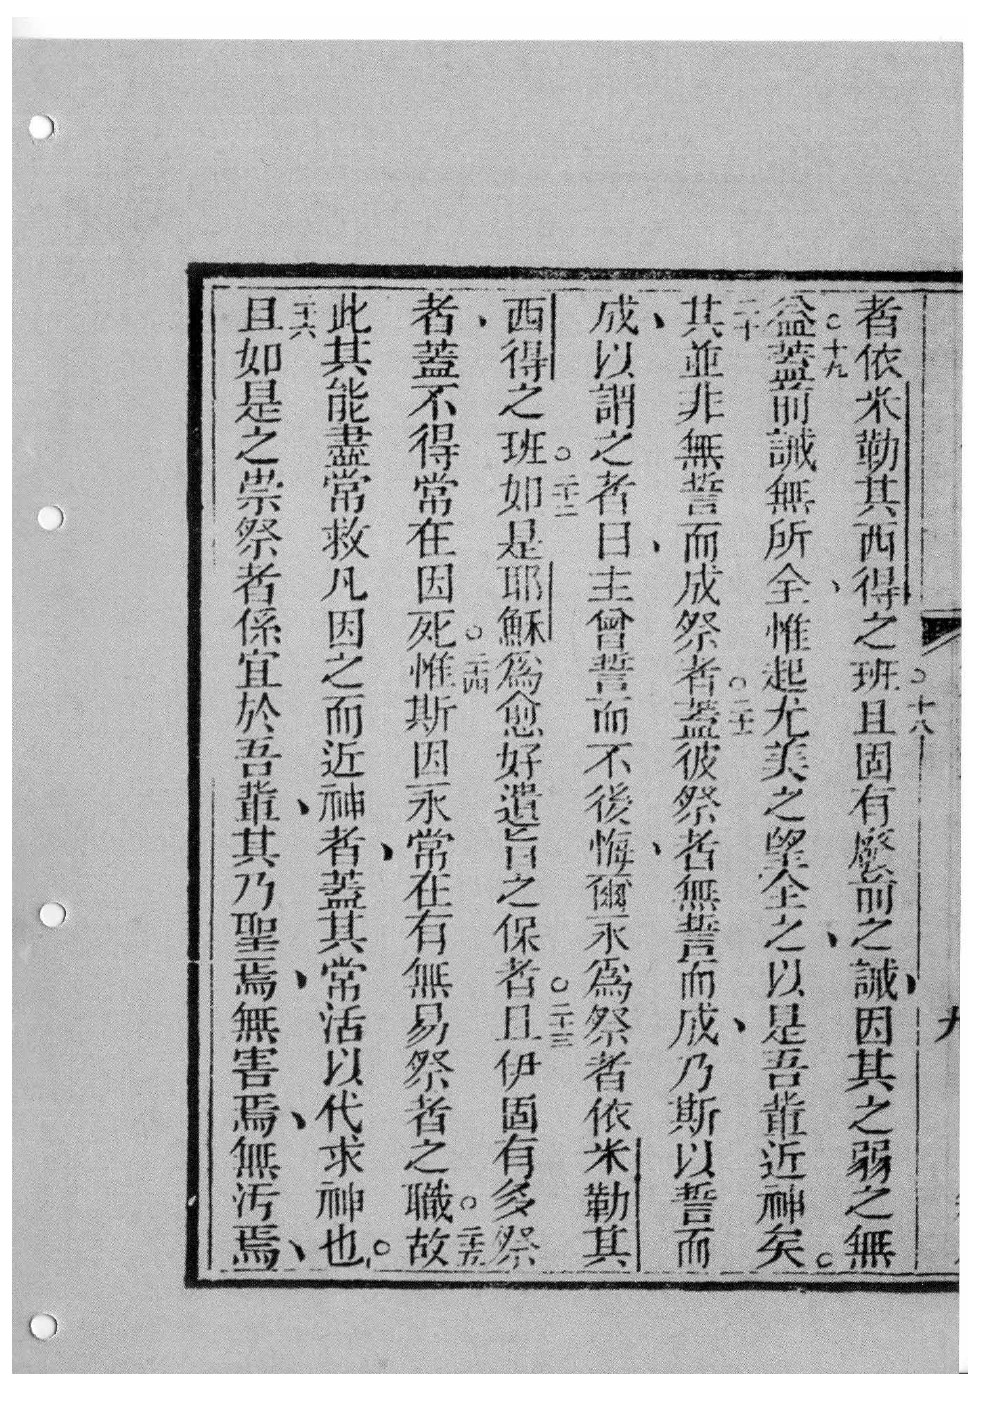 者依米勒其西得之班○十八且固有廢前之誡、因其之弱之無
益○十九蓋前誡無所全、惟起尤美之望全之、以是吾輩近神矣○
二十其並非無誓而成祭者○二十一蓋彼祭者無誓而成、乃斯以誓而
成、以謂之者曰、主曾誓而不後悔、爾永為祭者依米勒其
西得之班○二十二如是耶穌為愈好遺旨之保者○二十三且伊固有多祭
者、蓋不得常在因死○二十四惟斯因永常在有無易祭者之職○二十五故
此其能盡常救凡因之而近神者、蓋其常活以代求神也○
二十六且如是之崇祭者係宜於吾輩、其乃聖焉、無害焉、無汚焉、
九